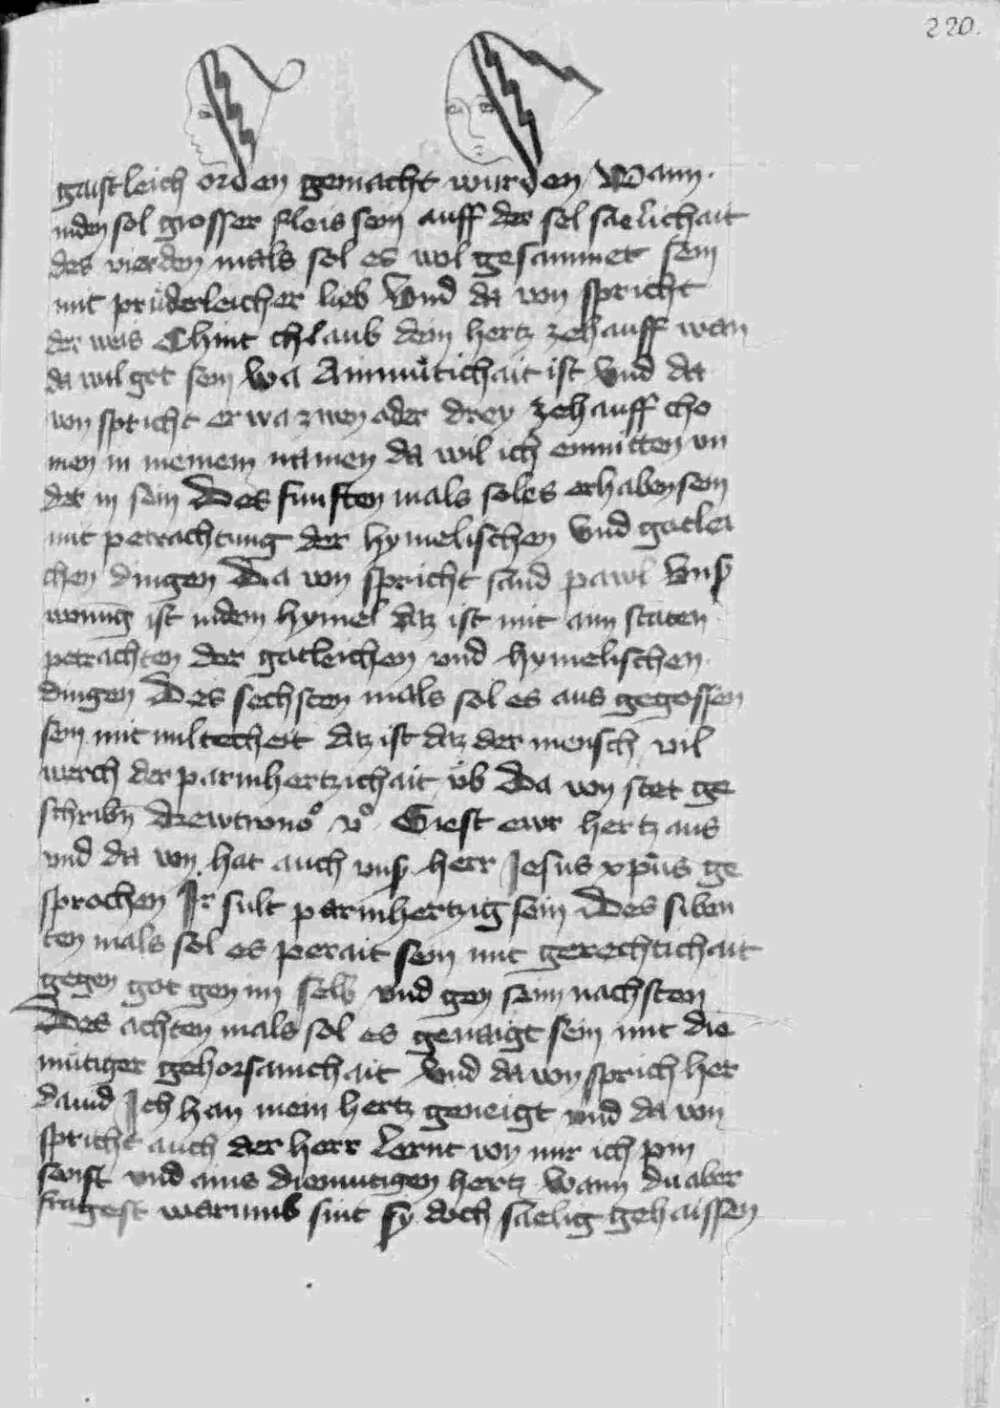 220.
gaistleich orden gemacht wurden Wann
inden sol grosser fleis sein auff der sel saelichait
des vierden mals sol es wol gesammet sein
mit prüderleicher lieb Vnd da von spricht
der weis Chint chlaub dein hertz zehauff wan
da wil got sein wa Ainmütichait ist Vnd da
von spricht er wa zwen oder drey zehauff cho
men in meinem namen da wil ich enmitten vn
der in sein Des funften mals sol es erhaben sein
mit petrachtung der hymelischen Vnd gotlei
chen dingen Da von spricht sand pawl Vnſ
wonūg ist indem hymel daz ist mit ain staten
petrachten der gotleichen vnd hymelischen
dingen Des sechsten mals sol es aus gegossen
sein mit miltecheit daz ist daz der mensch vil
werch der parmhertzichait üb Da von stet ge
schribn̄ Dewtronoº vº Giest ewr hertz aus
vnd da von hat auch vnſ herr Jesus xp̄us ge
sprochen Ir sult parmhertzig sein Des siben
ten mals sol es perait sein mit gerechtichait
gegen got gen im selb vnd gen seim nachsten
Des achten mals sol es genaigt sein mit die
mütiger gehorsamchait Vnd da von sprich her
dauid Ich han mein hertz geneigt vnd da von
spricht auch der herr Lernt von mir ich pin
senft vnd ains diemutigen hertz Wann du aber
fragest warumb sint sy doch saelig gehaissen